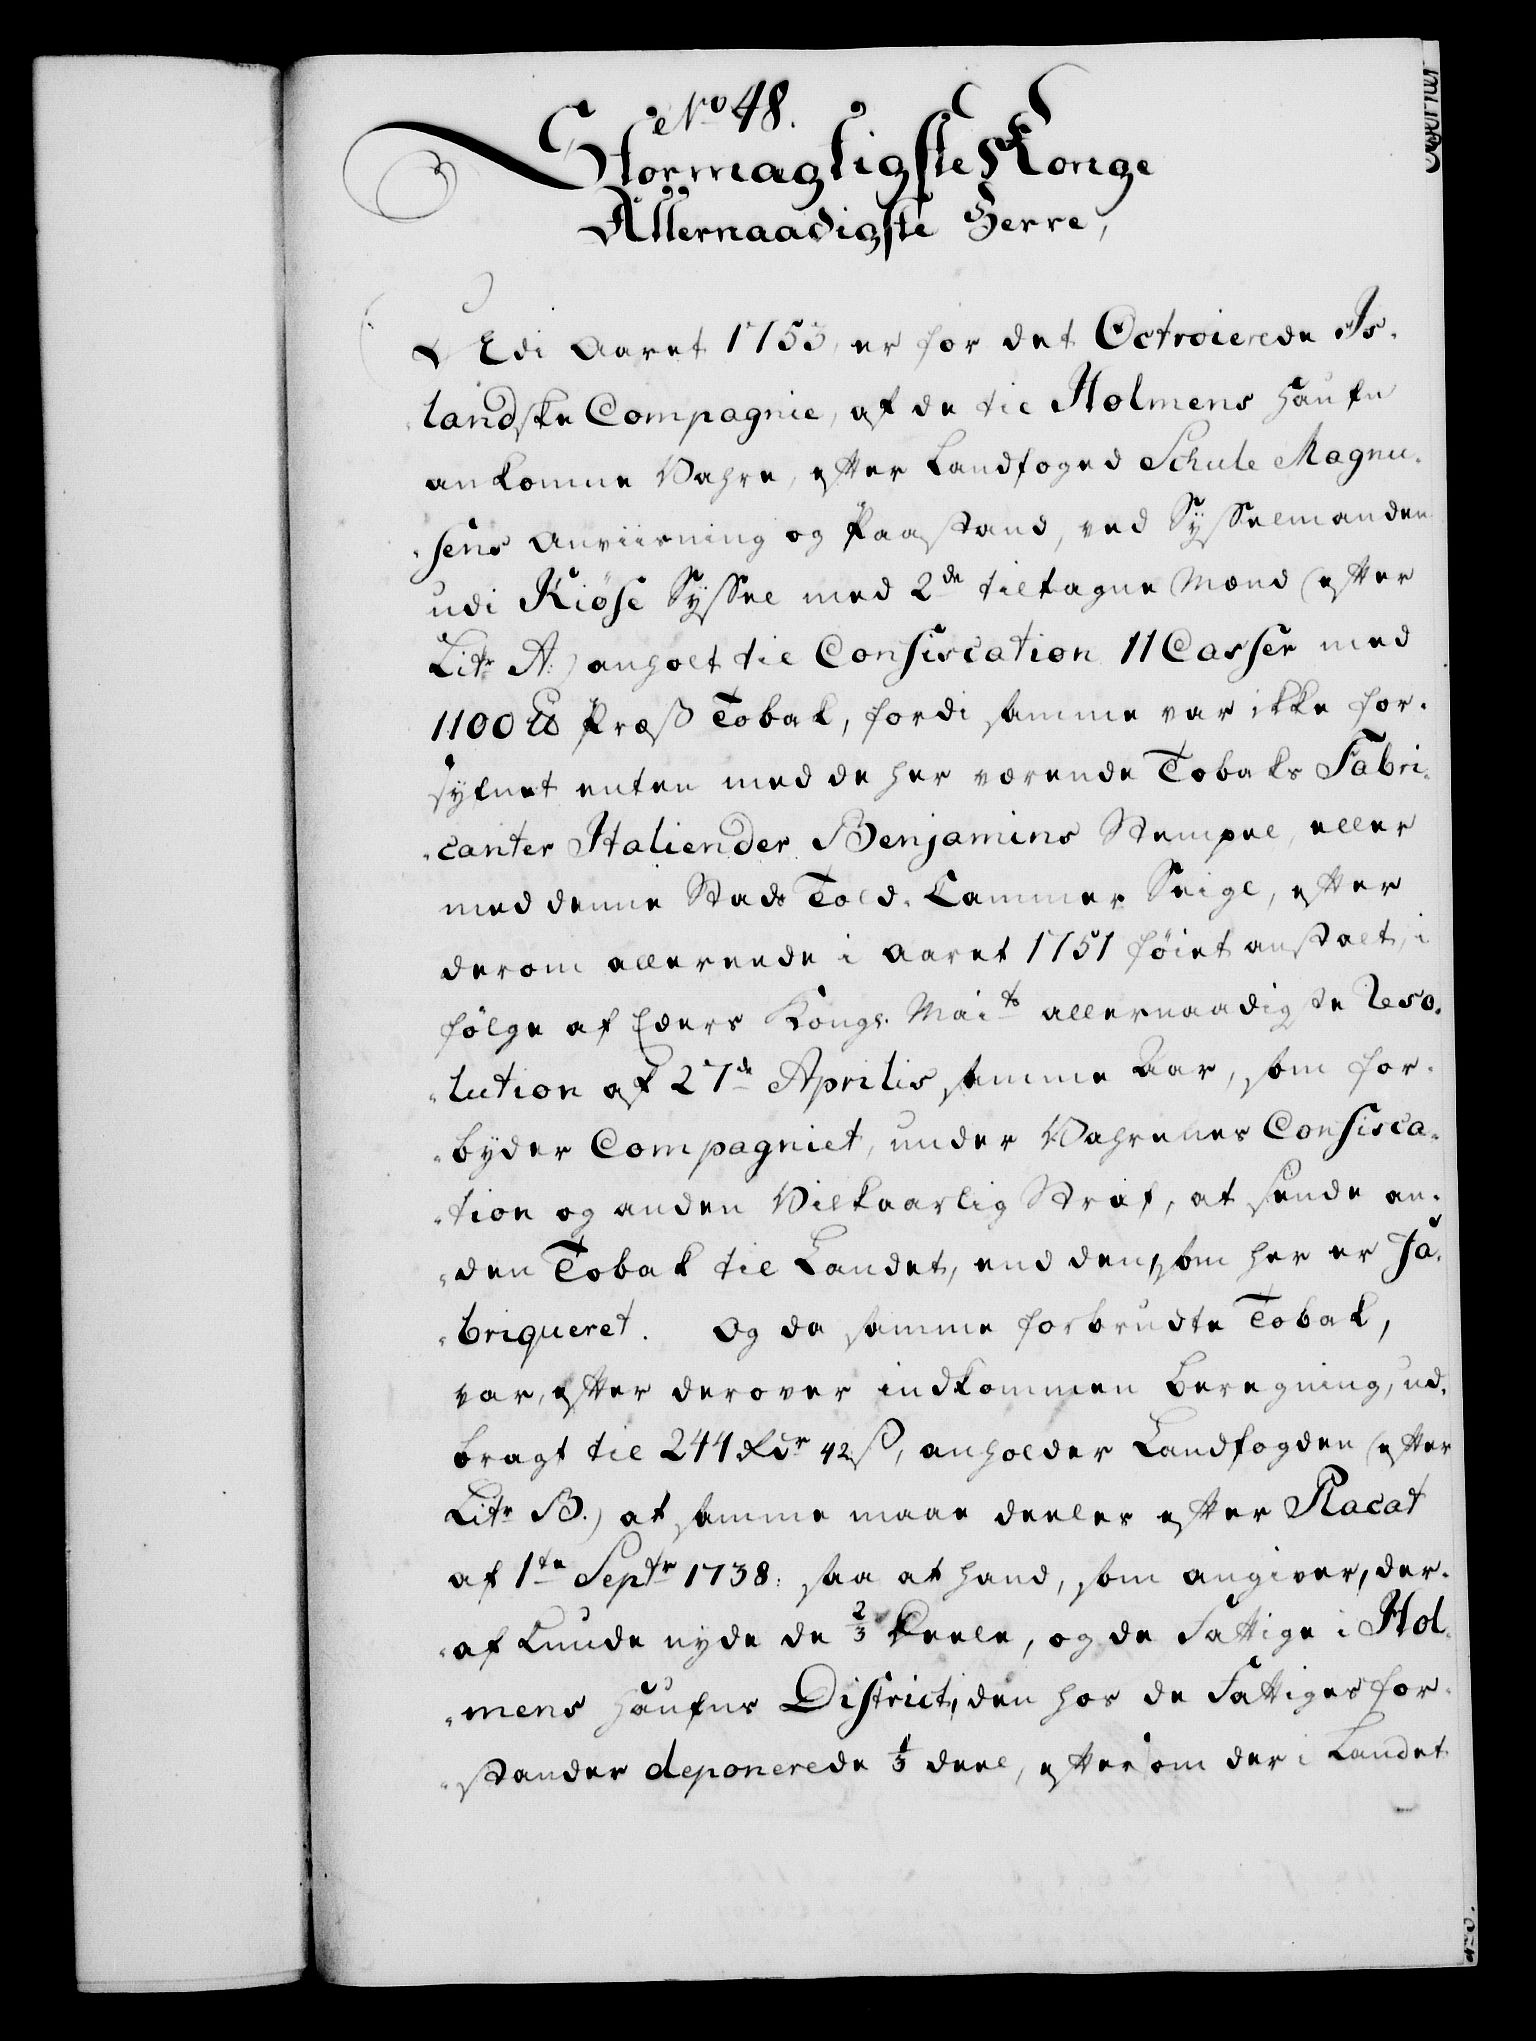 No 48.
Stormagtigste Konge
Allernaadigste Herre,
Udi Aaret 1753, er for det Octroierede Is-
landske Compagnie, af de til Holmens Haufn
ankomne Vahre, efter Landfoged Schule Magnu-
sens Anviisning og Paastand, ved Sysselmanden
udi Kiose Syssel med 2de tiltagne Mænd (efter
Litr A:) anholt til Confiscation 11 Casser med
1100 ℔ Præs Tobak, fordi samme var ikke for-
syfnet enten med de her værende Tobaks Fabri-
canter Italiender Benjamins Stempel, eller
med denne Stads Told-Cammer Seigl, efter
derom allereede i Aaret 1751 føiet anstalt, i
følge af Eders Kongl. Maits allernaadigste Reso-
lution af 27de Aprilis samme Aar, som for-
byder Compagniet, under Vahrenes Confisca-
tion og anden Vilkaarlig Straf, at sende an-
den Tobak til Landet, end den, som her er Fa-
briqueret. Og da samme forbrudte Tobak,
var, efter derover indkommen Beregning, ud-
bragt til 244 Rdr 42 ß, anholder Landfogden (efter
Litr B.) at samme maae deeles efter Placat
af 1te Septr 1738: saa at hand, som angiver, der-
af kunde nyde de 2/3 Deele, og de Fattige i Hol-
mens Haufns District, den hos de Fattiges for-
stander deponerede 1/3 deel, eftersom der i Landet